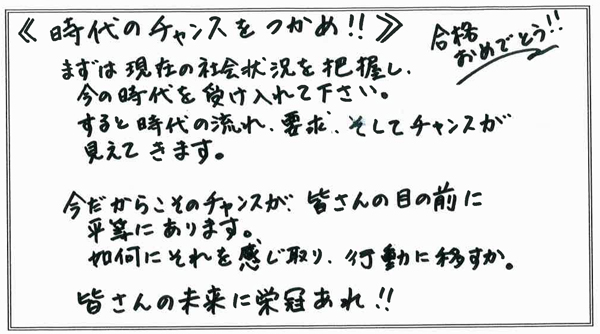 《時代のチャンスをつかめ!!》
合格
おめでとう!!
まずは現在の社会状況を把握し、
今の時代を受け入れて下さい。
すると時代の流れ、要求、そしてチャンスが
見えてきます。
今だからこそのチャンスが、皆さんの目の前に
平等にあります。
如何にそれを感じ取り、行動に移すか。
皆さんの未来に栄冠あれ!!